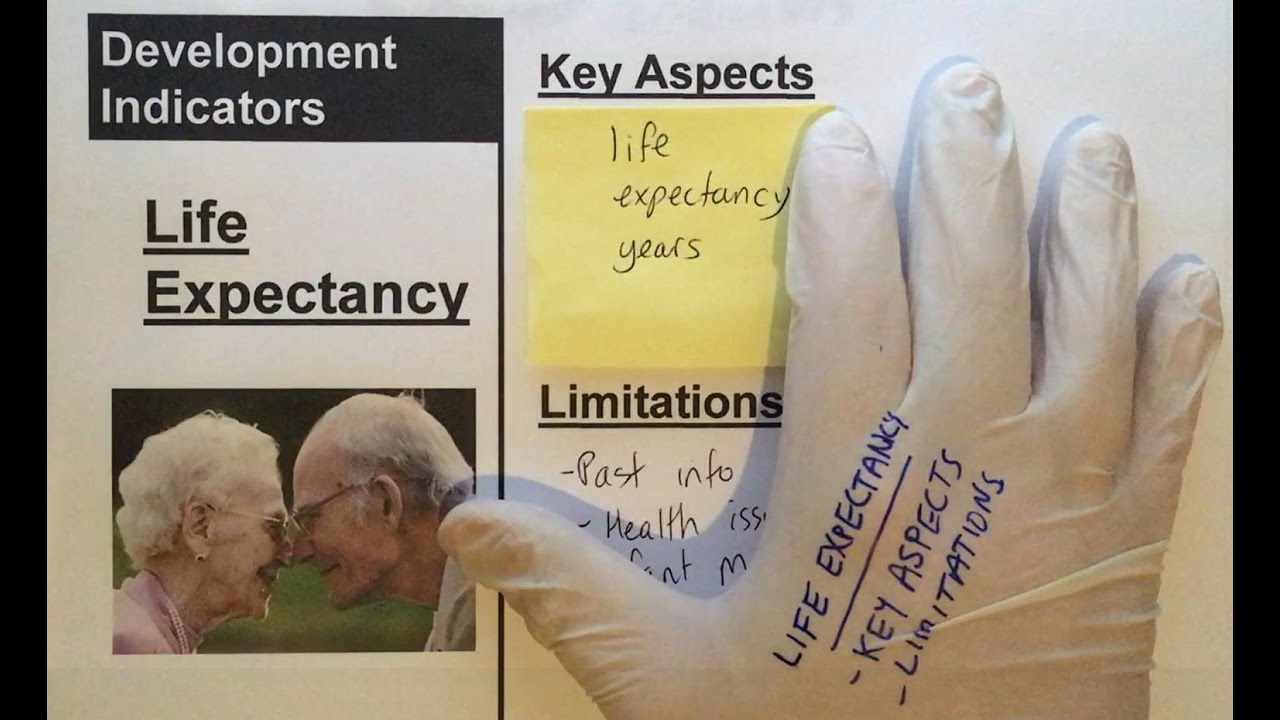 Development
Indicators
Life
Expectancy
Key Aspects
life
expectancy
years
Limitations
-Past info
- Health
LIFE EXPECTANCY
- KEY ASPECTS
- LIMITATIONS